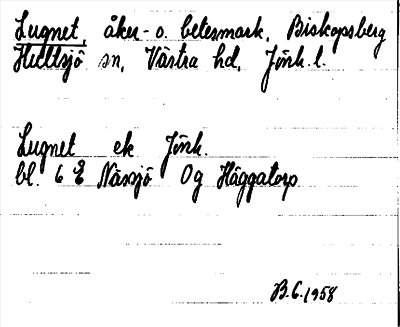 Lugnet, åker- o. betesmark, Biskopsberg
Hultsjö sn, Västra hd, Jönk. l.
Lugnet ek Jönk.
bl. 6 E Nässjö Og Häggatorp
B.G. 1958